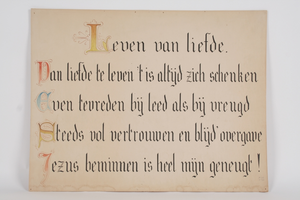 Leven van liefde.
Van liefde te leven 't is altijd zich schenken
Even tevreden bij leed als bij vreugd
Steeds vol vertrouwen en blijd' overgave
Jezus beminnen is heel mijn geneugt!